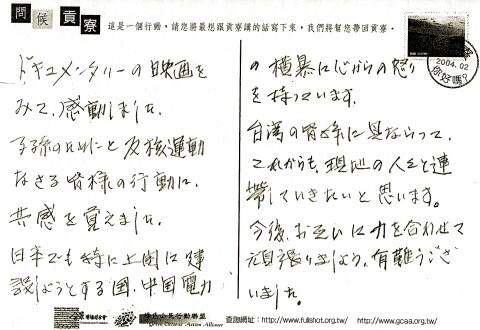 問候貢寮
這是一個行動，請您將最想跟貢寮講的話寫下來，我們將幫您帶回貢寮。
2004.02
你好嗎?
ドキュメンタリーの映画を
みて、感動しました。
子孫のためにと反核運動
なさる皆様の行動に、
共感を覚えました。
日本でも特に上関に建
設しようとする国、中国電力
の横暴に心からの怒り
を持っています。
台湾の皆様に見ならって、
これからも、現地の人々と連
帯していきたいと思います。
今後、お互いに力を合わせて
頑張りましょう。有難うござ
いました。
查詢網址：http://www.fullshot.org.tw/ http://www.gcaa.org.tw/